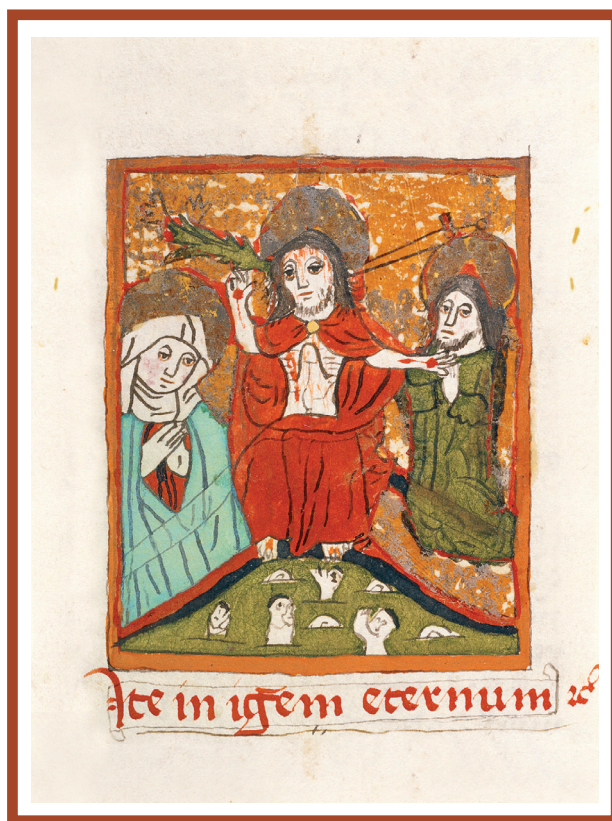 Ite in ignem eternum ꝛc